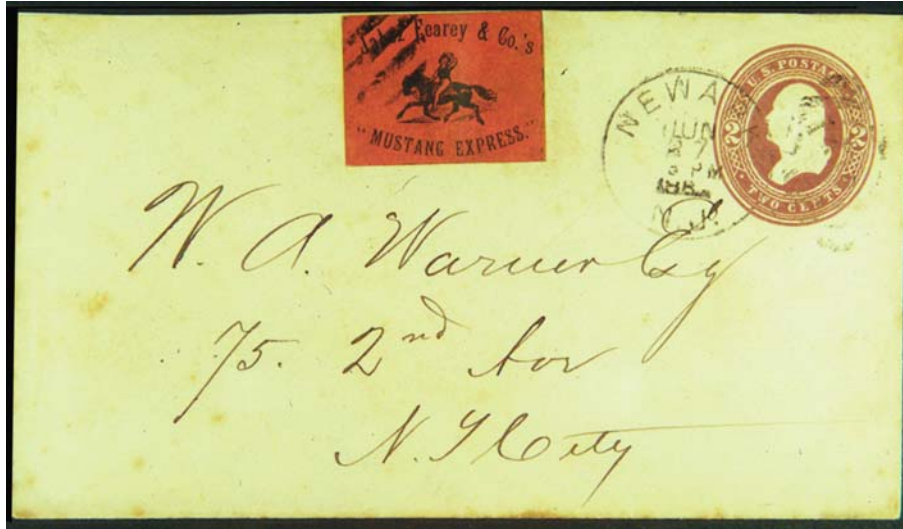 Jabez Fearey & Co.'s
"MUSTANG EXPRESS."
NEWARK
JUN
27
3 PM
188
N.J.
U.S. POSTAGE
2 2
TWO CENTS
W. A. Warner Esq
75. 2nd Ave
N. Y City